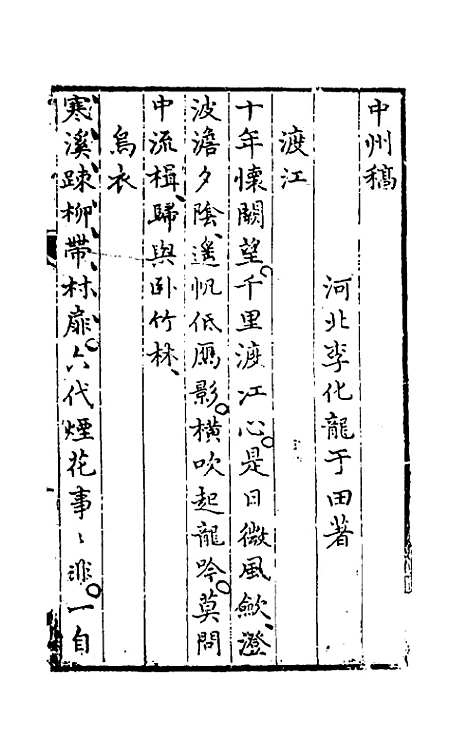 中州稿
河北李化龍于田著
渡江
十年懷闕望千里渡江心是日微風歛澄
波澹夕陰遙帆低鴈影橫吹起龍吟莫問
中流楫歸與卧竹林
烏衣
寒溪踈柳帶村扉六代煙花事〻非一自